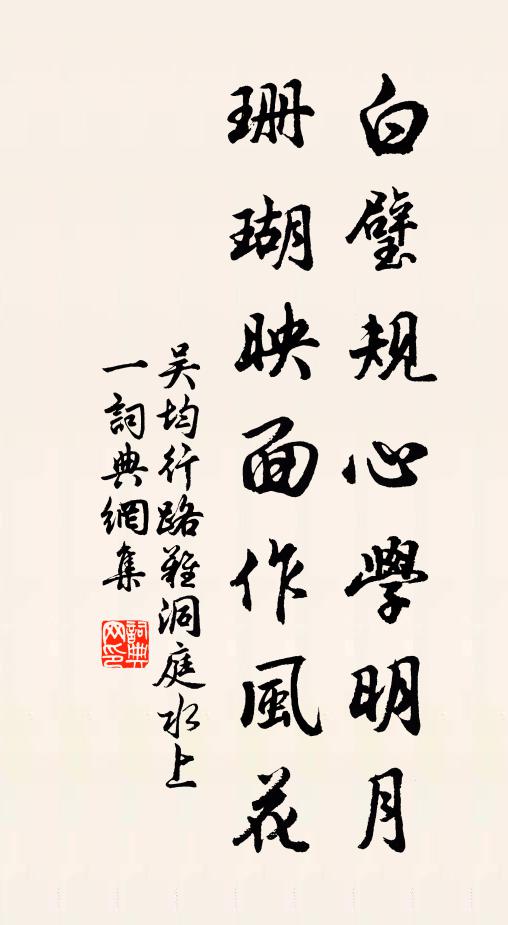 白璧規心學明月
珊瑚映面作風花
吴均行路難洞庭水上
一詞典網集
詞典
网印